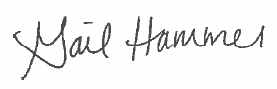 Gail Hammer